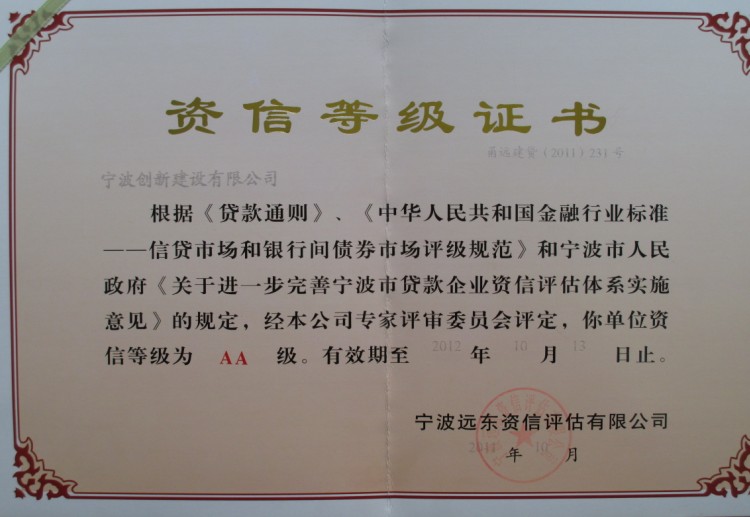 资信等级证书
甬远建资（2011）231号
宁波创新建设有限公司
根据《贷款通则》、《中华人民共和国金融行业标准
——信贷市场和银行间债券市场评级规范》和宁波市人民
政府《关于进一步完善宁波市贷款企业资信评估体系实施
意见》的规定，经本公司专家评审委员会评定，你单位资
信等级为 AA 级。有效期至 2012 年 10 月 13 日止。
宁波远东资信评估有限公司
2011 年 10 月